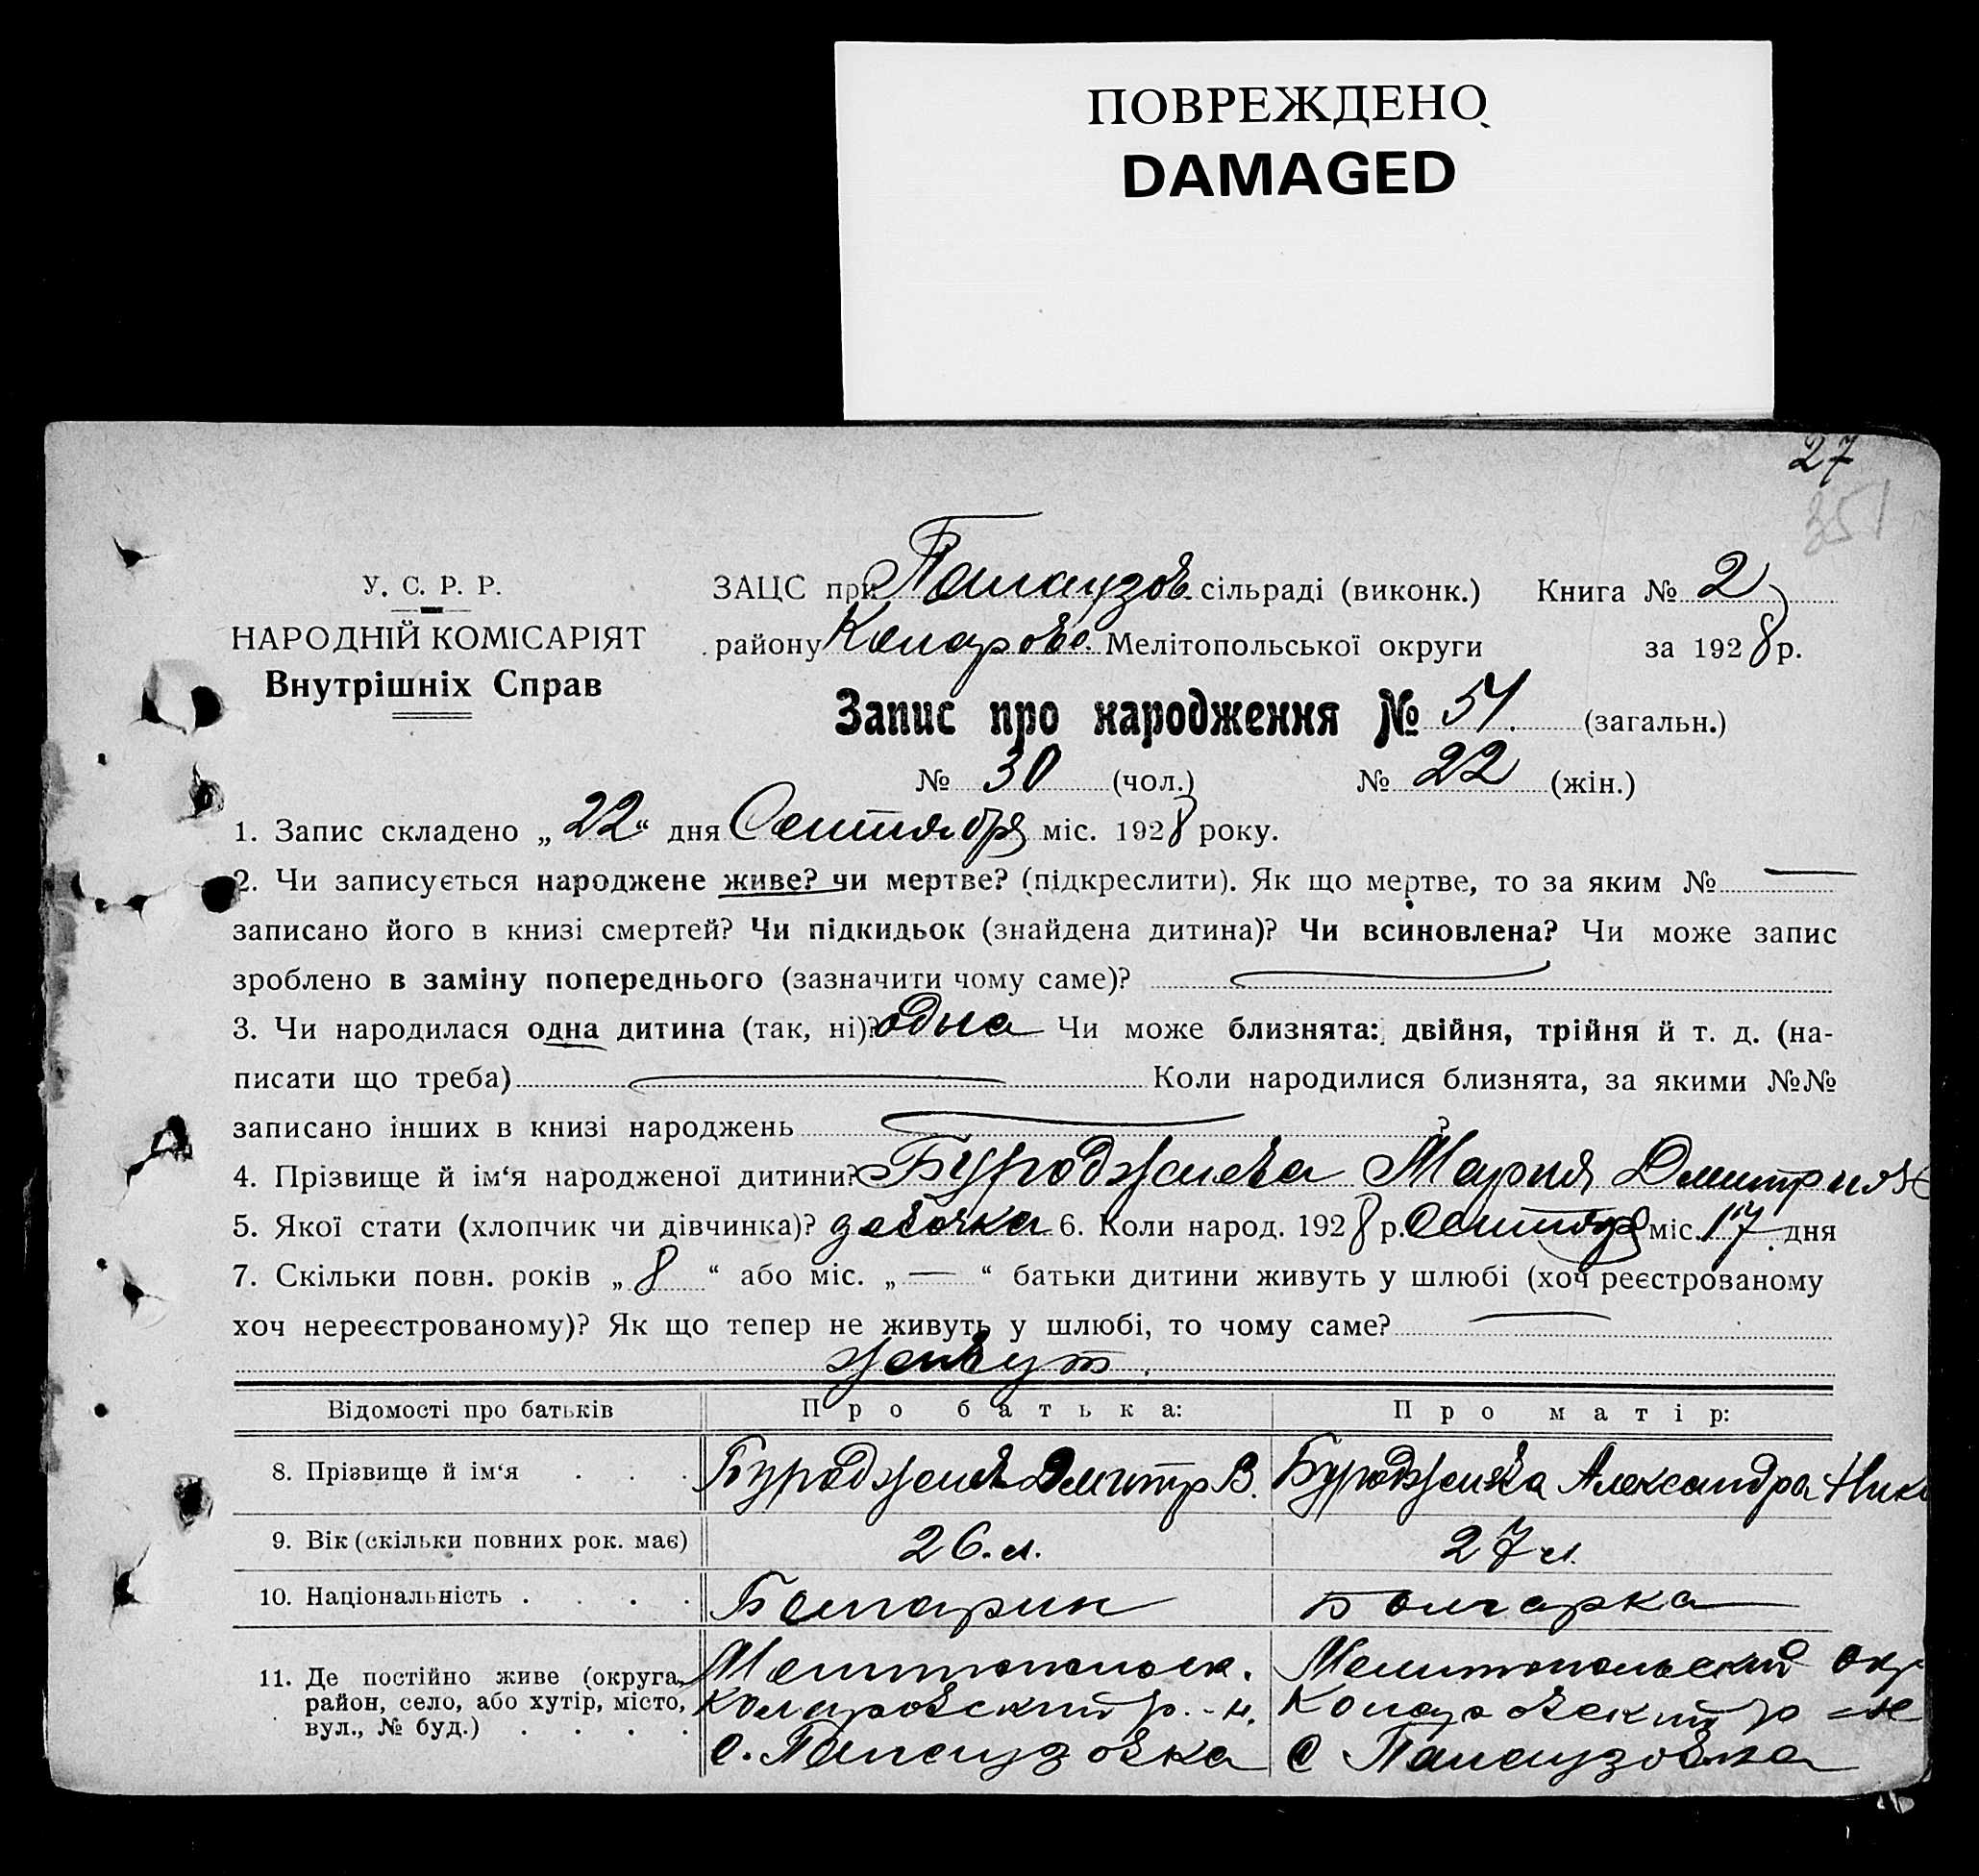 ПОВРЕЖДЕНО
DAMAGED
27
351
У. С. Р. Р.
НАРОДНІЙ КОМІСАРІЯТ
Внутрішніх Справ
ЗАЦС при Палаузов. сільраді (виконк.) Книга № 2
району Коларовс. Мелітопольської округи за 1928 р.
Запис про народження № 51. (загальн.)
№ 30 (чол.) № 22 (жін.)
1. Запис складено „ 22 “ дня Сентября міс. 1928 року.
2. Чи записується народжене живе? чи мертве? (підкреслити). Як що мертве, то за яким № —
записано його в книзі смертей? Чи підкидьок (знайдена дитина)? Чи всиновлена? Чи може запис
зроблено в заміну попереднього (зазначити чому саме)? —
3. Чи народилася одна дитина (так, ні)? одна Чи може близнята: двійня, трійня й т. д. (на-
писати що треба) — Коли народилися близнята, за якими №№
записано інших в книзі народжень — ?
4. Прізвище й ім‘я народженої дитини? Буроджиева Мария Дмитриев
5. Якої стати (хлопчик чи дівчинка)? девочка 6. Коли народ. 1928 р. Сентябр міс. 17 дня
7. Скільки повн. років „ 8 “ або міс. „ — “ батьки дитини живуть у шлюбі (хоч реєстрованому
хоч нереєстрованому)? Як що тепер не живуть у шлюбі, то чому саме? —
живут.
Відомості про батьків Про батька: Про матір:
8. Прізвище й ім‘я . . . Буроджиев Дмитр В. Буроджиева Александра Нико
9. Вік (скільки повних рок. має) 26. л. 27 л.
10. Національність . . . . Болгарин Болгарка
11. Де постійно живе (округа, Мелитопольск. Мелитопольский окр
район, село, або хутір, місто, Коларовский р.-н. Коларовский р-н
вул., № буд.) . . . . с. Палаузовка с Палаузовка